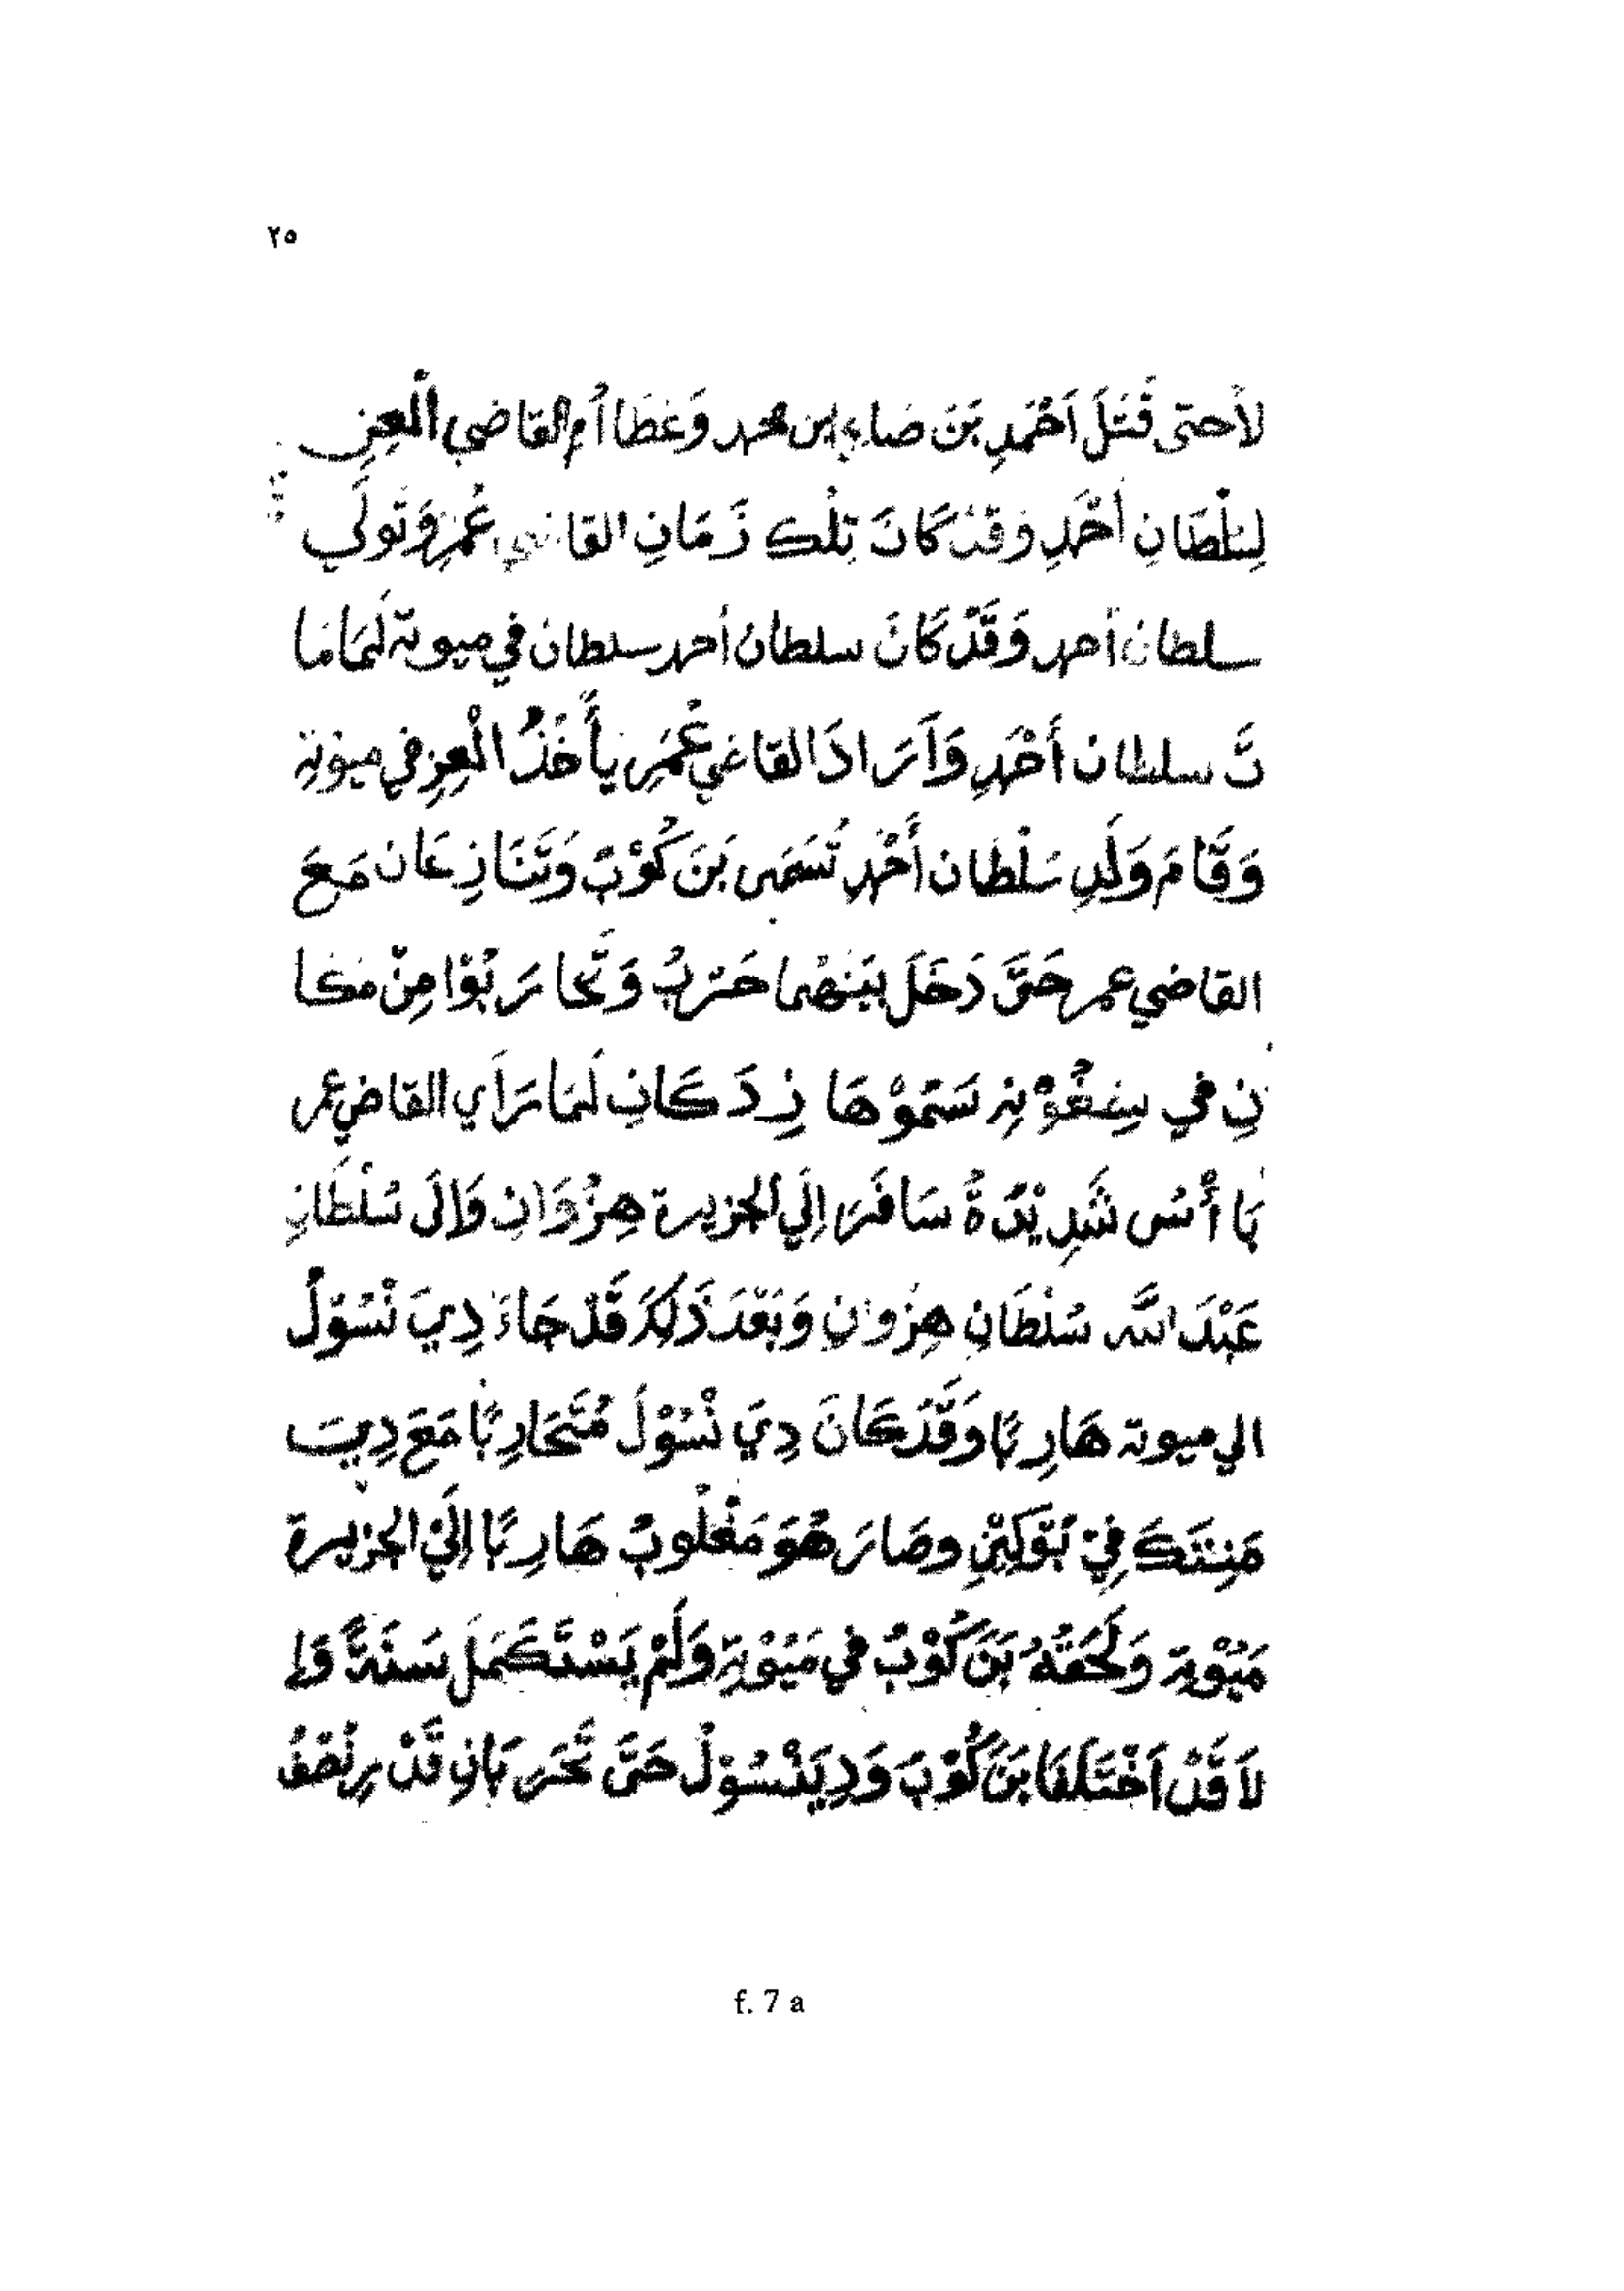 ٢٥
لأحتى قَتَلَ اَحْمَدِ بَنَ صَاءِ ابن محمد وَعَطَا أُم القاضي الْعِزِ
لِسُلْطَانِ اَحْمَدِ وَقَدْ كَانَ تِلْك زَمَانِ القاضي عُمَرِ وَتَولَّي
سلطان أحمد وَقَدْ كَانَ سلطان أحمد سلطان في ميوتة لَمَامَا
تَ سلطان أَحْمَدِ وَآَرَادَ القاغي عُمَرِ يأَخَذُ الْعِزِ في ميوتِة
وَقَامَ وَلَدِ سَلْطَان أَحْمَدِ تُسَمَى بَنَ كُوْبُ وَتَنَازِعَان مَعَ
القاضي عمر حَتَّ دَخَلَ بَيْنَهُمَا حَرْبُ وَتَّحَارَبُوْا مِنْ مَكَا
نِ في سِنغُوْنِ سَمَّوْهَا نِدَ كَانِ لَمَا رَاَي القاضي عمر
بَا أْسُ شَدِيْدَةُ سَافَرَ اِلَي الجزيرة هِنْزُوَانِ وَاِلَى سُلْطَانِ
عَبْدَ اللّٰه سُلْطَانِ هِنْزُوانِ وَبَعْدَ ذَلِكَ قَدْ جَاءَ دِيَ نْسُوْلُ
الي ميوتة هَارِبًا وَقَدْ كَانَ دِيَ نْسُوْلَ مُتَحَارِبًا مَعَ دِيَ
مَنِتَكَ فِيْ بُوْكِيْنِ وصَارَ هُوَ مَغْلُوبُ هَارِبًا اِلَيْ الجزيرة
مَيُوْتِة وَلَحَقَهُ بَنَ كُوْبُ في مَيُوْتِة وَلَمْ يَسْتَكْمَلَ سَنَةً وَاِ
لاَ قَدْ اَخْتَلَفَا بَنَ كُوْبَ وَدِيَنْسُوْلْ حَتَّ تَّحَرَبَانِ قَدْ رِنْصَفُ
f. 7 a